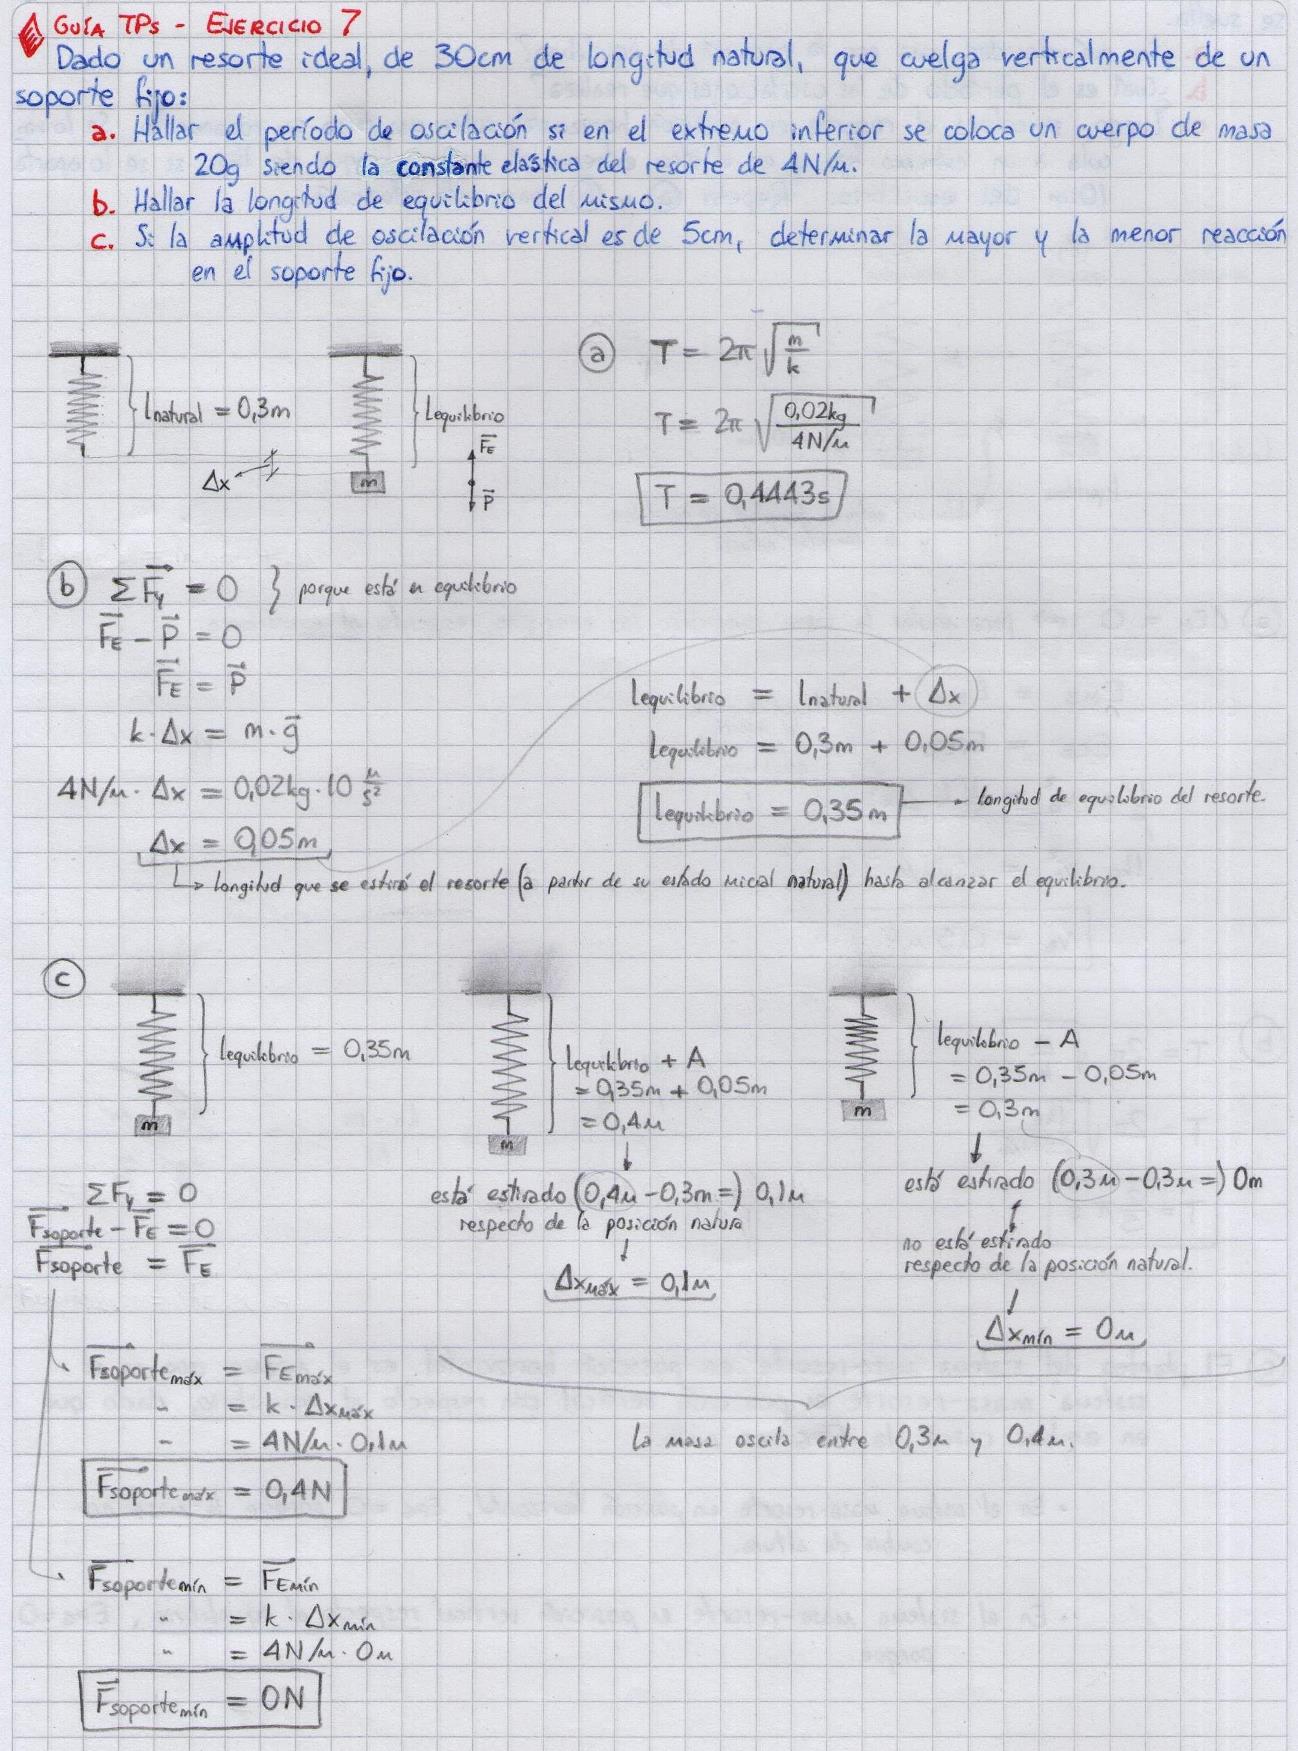 GUÍA TPs - EJERCICIO 7
Dado un resorte ideal, de 30cm de longitud natural, que cuelga verticalmente de un
soporte fijo:
a. Hallar el período de oscilación si en el extremo inferior se coloca un cuerpo de masa
20g siendo la constante elástica del resorte de 4N/m.
b. Hallar la longitud de equilibrio del mismo.
c. Si la amplitud de oscilación vertical es de 5cm, determinar la mayor y la menor reacción
en el soporte fijo.
Lnatural = 0,3m
Lequilibrio
Δx
m
F⃗E
P⃗
a
T = 2π √(m/k)
T = 2π √(0,02kg / 4N/m)
T = 0,4443s
b
ΣF⃗y = 0 } porque está en equilibrio
F⃗E - P⃗ = 0
F⃗E = P⃗
k·Δx = m·g⃗
4N/m · Δx = 0,02kg·10 m/s²
Δx = 0,05m
longitud que se estiró el resorte (a partir de su estado inicial natural) hasta alcanzar el equilibrio.
Lequilibrio = Lnatural + Δx
Lequilibrio = 0,3m + 0,05m
Lequilibrio = 0,35m
longitud de equilibrio del resorte.
c
Lequilibrio = 0,35m
m
ΣFy = 0
Fsoporte - FE = 0
Fsoporte = FE
Lequilibrio + A
= 0,35m + 0,05m
= 0,4m
m
está estirado (0,4m - 0,3m =) 0,1m
respecto de la posición natura
Δxmáx = 0,1m
Lequilibrio - A
= 0,35m - 0,05m
= 0,3m
m
está estirado (0,3m - 0,3m =) 0m
no está estirado
respecto de la posición natural.
Δxmín = 0m
La masa oscila entre 0,3m y 0,4m.
Fsoportemáx = FEmáx
" = k · Δxmáx
" = 4N/m · 0,1m
Fsoportemáx = 0,4N
Fsoportemín = FEmín
" = k · Δxmín
" = 4N/m · 0m
Fsoportemín = 0N